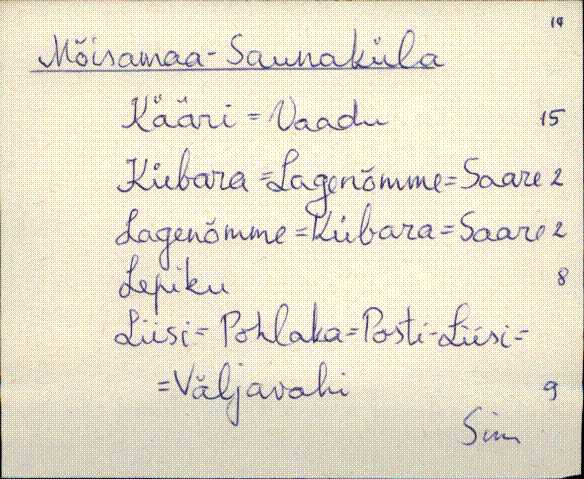 14
Mõisamaa-Saunaküla
Kääri = Vaadu 15
Kübara = Lagenõmme = Saare 2
Lagenõmme = Kübara = Saare 2
Lepiku 8
Liisi = Pohlaka = Posti-Liisi =
= Väljavahi 9
Sim